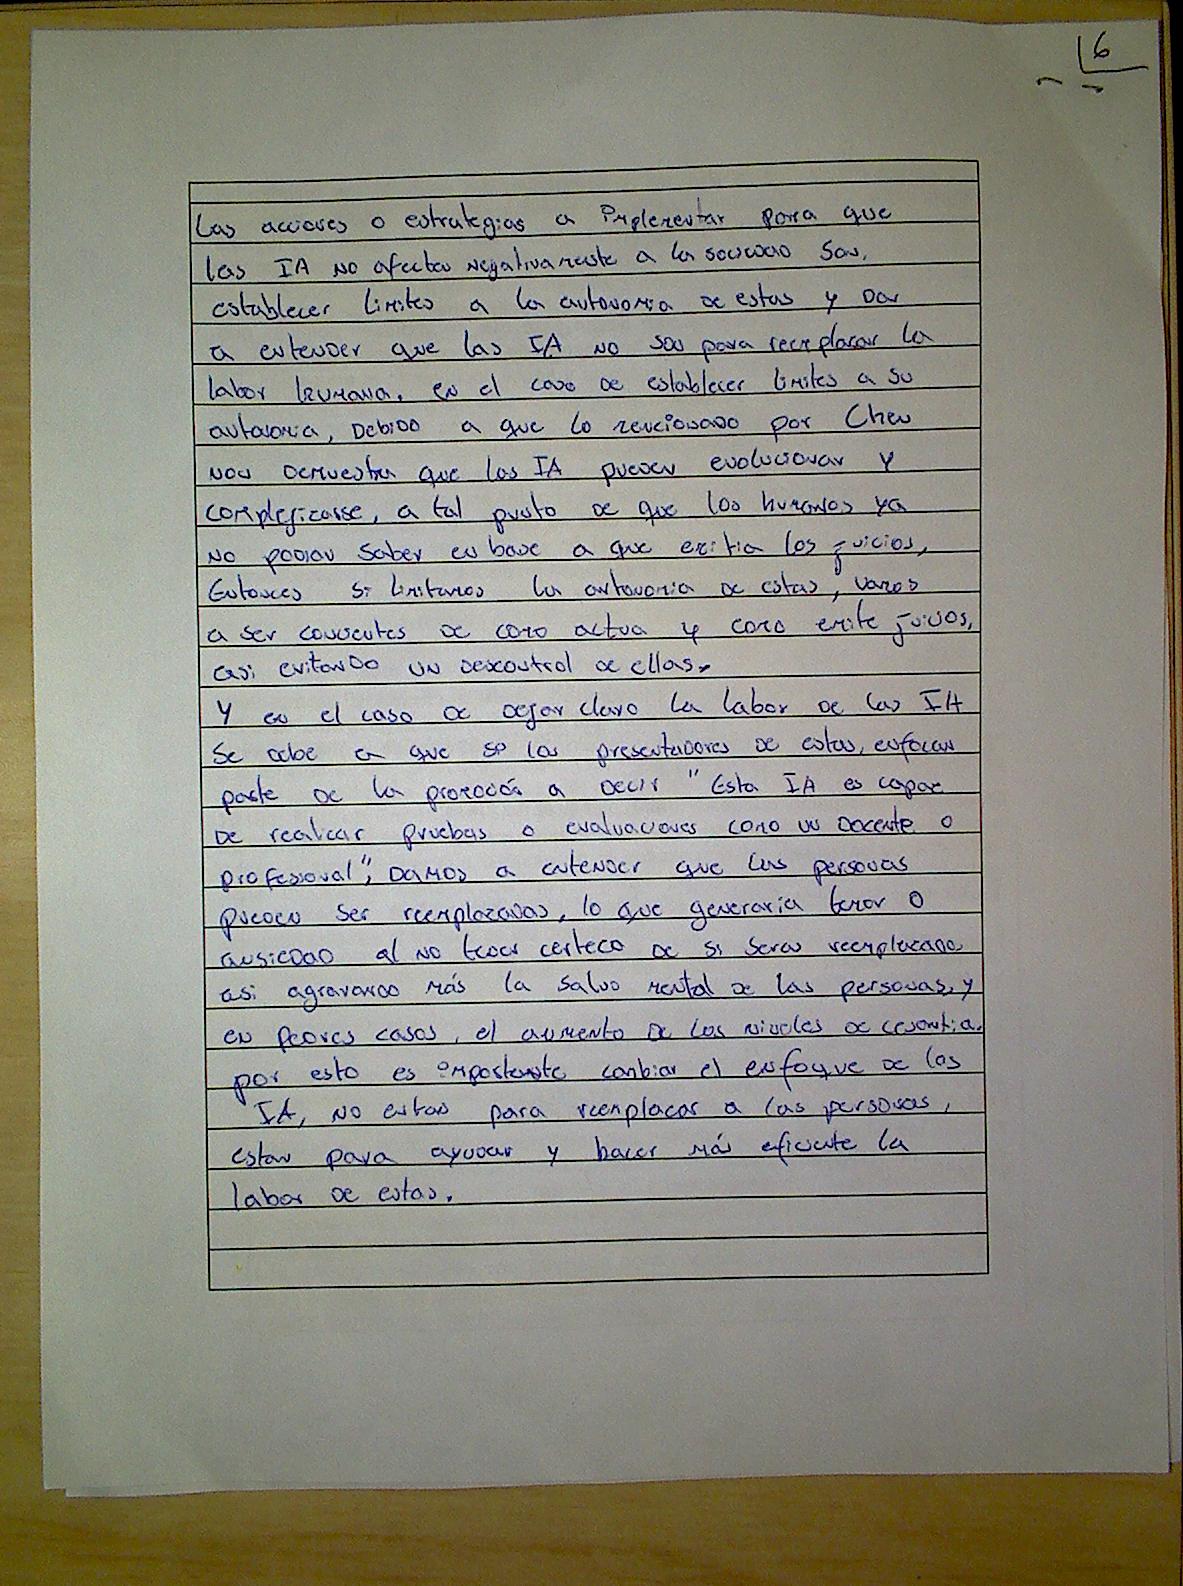 6
Las acciones o estrategias a implementar para que
las IA no afecten negativamente a la sociedad son,
establecer limites a la autonomia de estas y Dar
a entender que las IA no son para reemplazar la
labor humana. en el caso de establecer limites a su
autonomia, Debido a que lo mencionado por Chen
nos demuestra que las IA pueden evolucionar y
complejizarse, a tal punto de que los humanos ya
no podian saber en base a que emitia los juicios,
Entonces si limitamos la autonomia de estas, vamos
a ser conscentes de como actua y como emite juicios,
asi evitando un descontrol de ellas.
Y en el caso de dejar claro la labor de las IA
se debe a que si los presentadores de estas, enfocan
parte de la promoción a decir "Esta IA es capaz
de realizar pruebas o evaluaciones como un docente o
profesional", Damos a entender que las personas
pueden ser reemplazadas, lo que generaria temor o
ansiedad al no tener certeza de si seran reemplazados
asi agravando más la salud mental de las personas, y
en peores casos, el aumento de los niveles de cesantia.
por esto es importante cambiar el enfoque de las
IA, no estan para reemplazar a las personas,
estan para ayudar y hacer más eficiente la
labor de estas.